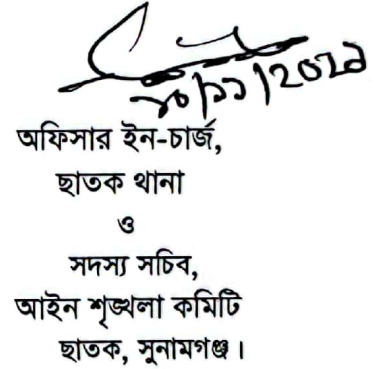 অফিসার ইন-চার্জ,
ছাতক থানা
ও
সদস্য সচিব,
আইন শৃঙ্খলা কমিটি
ছাতক, সুনামগঞ্জ।